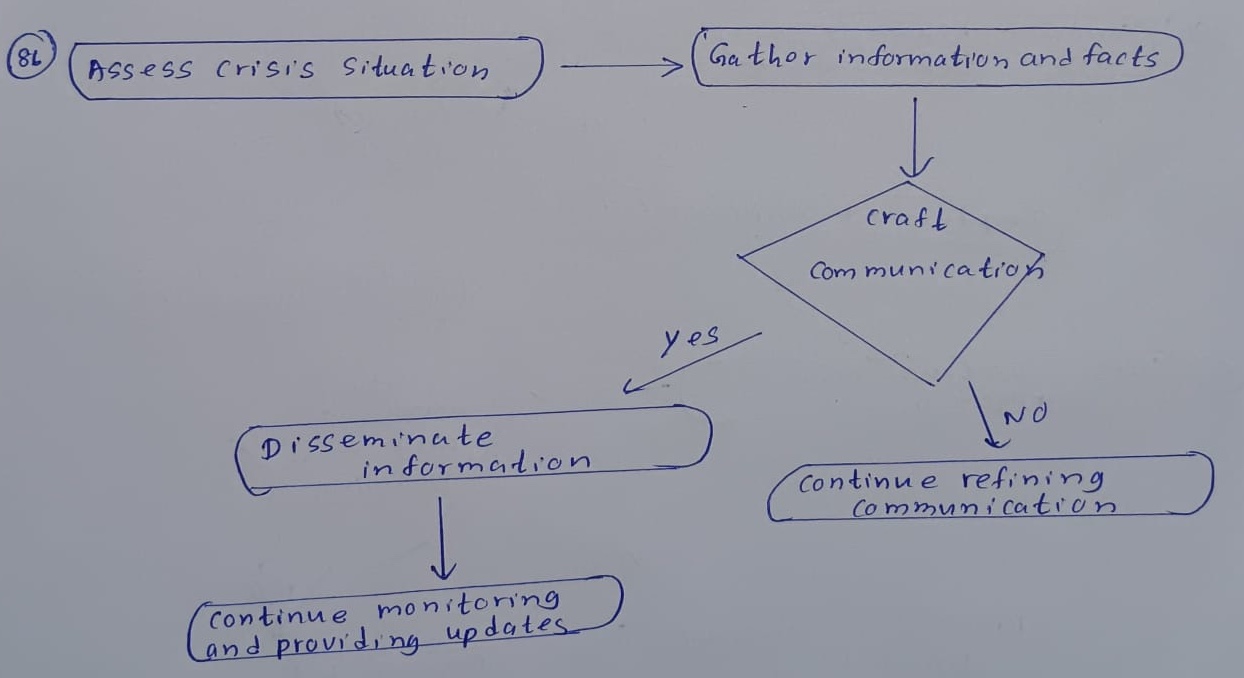 86
Assess crisis situation
Gathor information and facts
craft
communication
yes
NO
Disseminate
information
continue refining
communication
continue monitoring
and providing updates